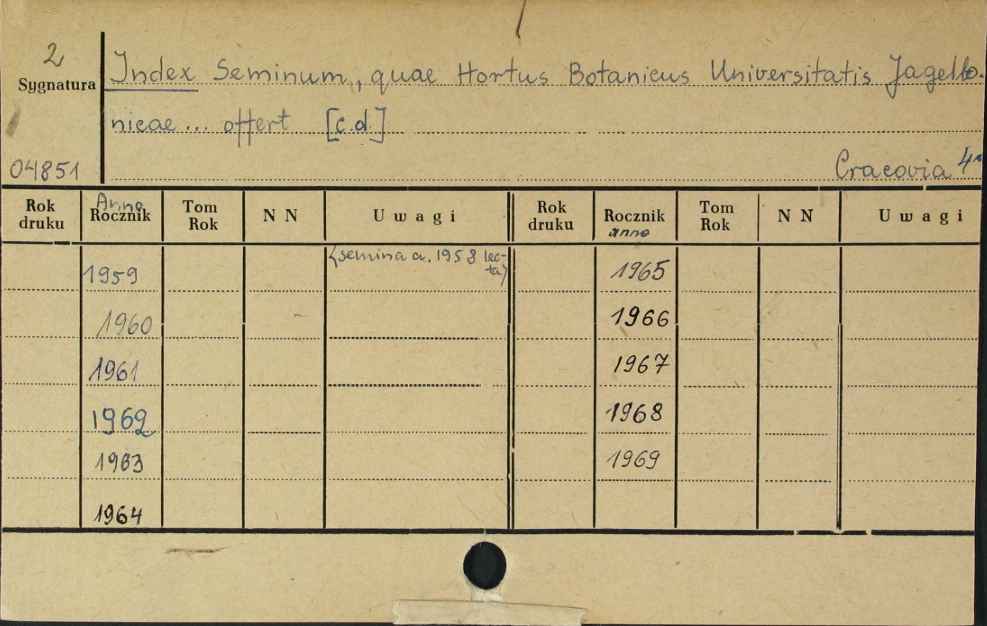 2
Sygnatura
Index Seminum, quae Hortus Botanicus Universitatis Jagello-
nicae... offert [c.d.]
04851
Cracovia
Rok druku Anno Rocznik Tom Rok N N Uwagi Rok druku Rocznik anno Tom Rok N N Uwagi
1959 (semina a. 1958 lec-
ta) 1965
1960 1966
1961 1967
1962 1968
1963 1969
1964